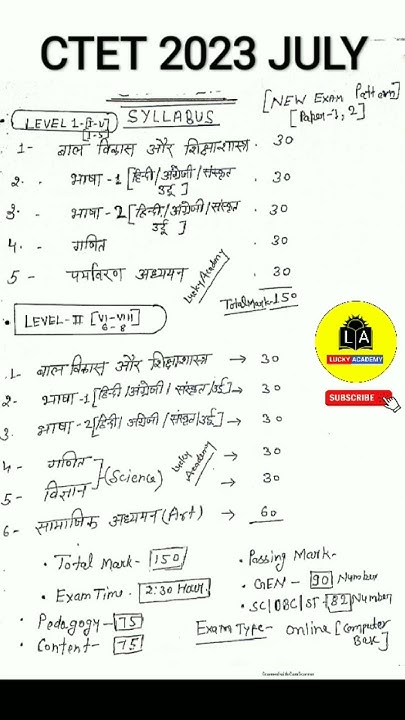 CTET 2023 JULY
SYLLABUS
[NEW Exam Pattern]
[Paper-1, 2]
LEVEL 1-[I-V]
[1-5]
1- बाल विकास और शिक्षाशास्त्र. 30
2. भाषा -1 [हिन्दी/अंग्रेजी/संस्कृत . 30
उर्दू ]
3. - भाषा - 2 [हिन्दी/अंग्रेजी/संस्कृत . 30
उर्दू ]
4. - गणित . 30
5 - पर्यावरण अध्ययन . 30
Lucky Academy
Total Mark-150
LEVEL-II [VI-VIII]
6-8
LA
LUCKY ACADEMY
SUBSCRIBE
1- बाल विकास और शिक्षाशास्त्र → 30
2- भाषा -1 [हिन्दी/अंग्रेजी/संस्कृत/उर्दू] → 30
3. भाषा -2 [हिन्दी/अंग्रेजी/संस्कृत/उर्दू] → 30
4- गणित → 30
(Science)
5- विज्ञान → 30
Lucky Academy
6- सामाजिक अध्ययन (Art) → 60
• Total Mark - 150
• Exam Time - 2:30 Hour.
• Pedagogy - 75
• Content - 75
• Passing Mark-
• GEN - 90 Number
• SC/OBC/ST - 82 Number
Exam Type - Online [Computer
Bas]